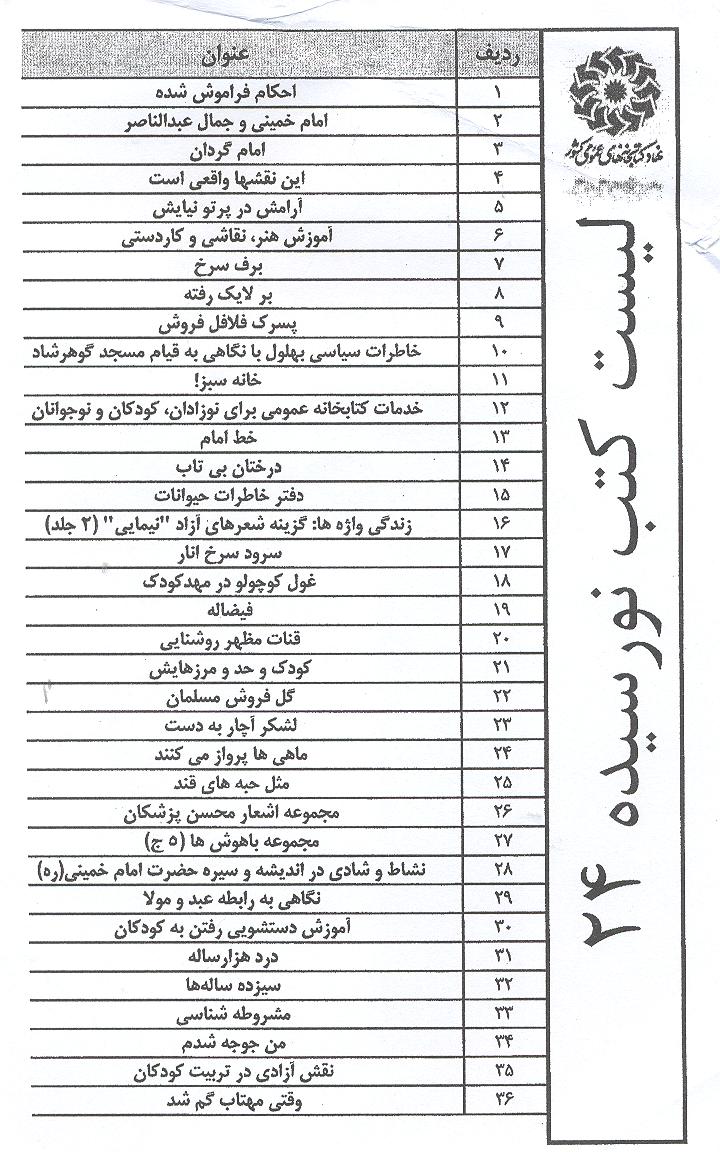 نهاد کتابخانه‌های عمومی کشور
لیست کتب نورسیده ۲۴
ردیف عنوان
۱ احکام فراموش شده
۲ امام خمینی و جمال عبدالناصر
۳ امام گردان
۴ این نقشها واقعی است
۵ آرامش در پرتو نیایش
۶ آموزش هنر، نقاشی و کاردستی
۷ برف سرخ
۸ بر لایک رفته
۹ پسرک فلافل فروش
۱۰ خاطرات سیاسی بهلول با نگاهی به قیام مسجد گوهرشاد
۱۱ خانه سبز!
۱۲ خدمات کتابخانه عمومی برای نوزادان، کودکان و نوجوانان
۱۳ خط امام
۱۴ درختان بی تاب
۱۵ دفتر خاطرات حیوانات
۱۶ زندگی واژه ها: گزینه شعرهای آزاد "نیمایی" (۲ جلد)
۱۷ سرود سرخ انار
۱۸ غول کوچولو در مهدکودک
۱۹ فیضاله
۲۰ قنات مظهر روشنایی
۲۱ کودک و حد و مرزهایش
۲۲ گل فروش مسلمان
۲۳ لشکر آچار به دست
۲۴ ماهی ها پرواز می کنند
۲۵ مثل حبه های قند
۲۶ مجموعه اشعار محسن پزشکان
۲۷ مجموعه باهوش ها (۵ ج)
۲۸ نشاط و شادی در اندیشه و سیره حضرت امام خمینی(ره)
۲۹ نگاهی به رابطه عبد و مولا
۳۰ آموزش دستشویی رفتن به کودکان
۳۱ درد هزارساله
۳۲ سیزده ساله‌ها
۳۳ مشروطه شناسی
۳۴ من جوجه شدم
۳۵ نقش آزادی در تربیت کودکان
۳۶ وقتی مهتاب گم شد